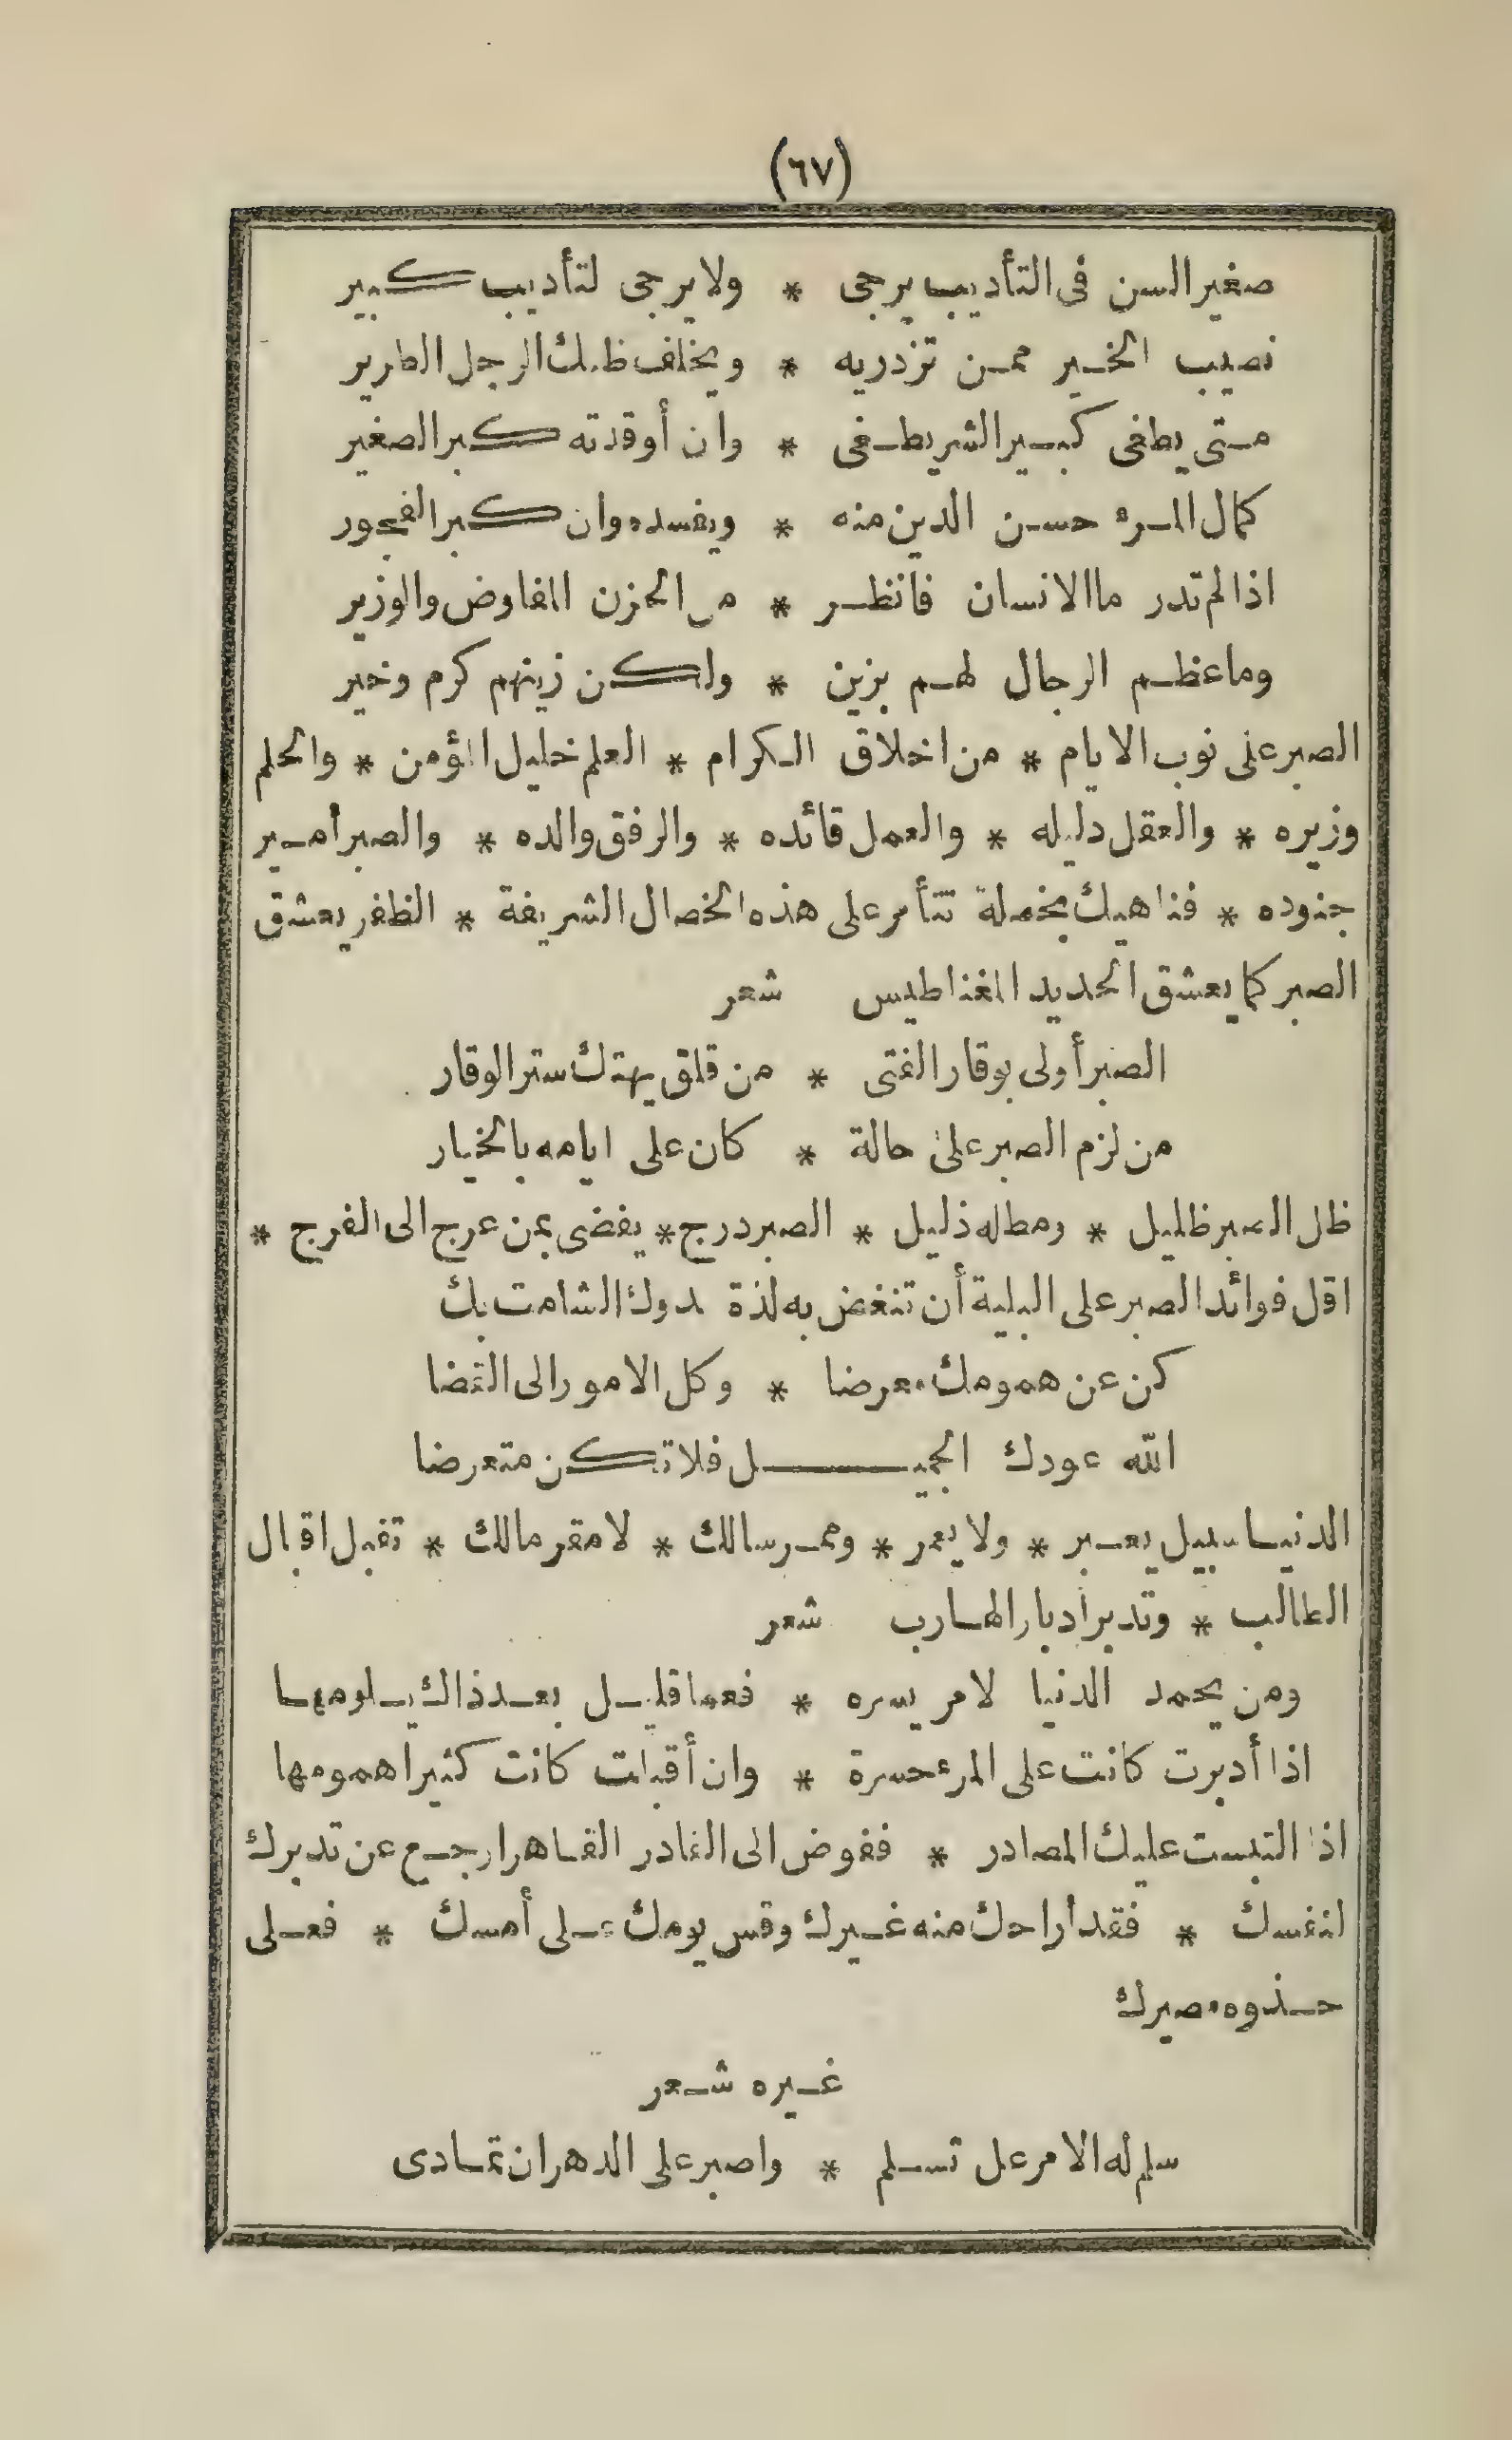 (٦٧)
صغير السن فى التأديب يرجى * ولا يرجى لتأديب كبير
نصيب الخير ممن تزدريه * ويخلف ظنك الرجل الطرير
متى يطفى كبير الشر يطفى * وان أوقدته كبر الصغير
كمال المرء حسن الدين منه * ويفسده وان كبر الفجور
اذا لم تدر ما الانسان فانظر * من الخزن المفاوض والوزير
وما عظم الرجال لهم بزين * ولكن زينهم كرم وخير
الصبر على نوب الايام * من اخلاق الكرام * العلم خليل المؤمن * والحلم
وزيره * والعقل دليله * والعمل قائده * والرفق والده * والصبر أمير
جنوده * فناهيك بخصلة تتأمر على هذه الخصال الشريفة * الظفر يعشق
الصبر كما يعشق الحديد المغناطيس شعر
الصبر أولى بوقار الفتى * من قلق يهتك ستر الوقار
من لزم الصبر على حالة * كان على ايامه بالخيار
ظل الصبر ظليل * ومطاله ذليل * الصبر درج * يفضى بمن عرج الى الفرج *
اقل فوائد الصبر على البلية أن تنغض به لذة عدوك الشامت بك
كن عن همومك معرضا * وكل الامور الى القضا
الله عودك الجميل فلا تكن متعرضا
الدنيا سبيل يعبر * ولا يعمر * وممر سالك * لا مقر مالك * تقبل اقبال
الطالب * وتدبر ادبار الهارب شعر
ومن يحمد الدنيا لامر يسره * فعما قليل بعد ذاك يلومها
اذا أدبرت كانت على المرء حسرة * وان أقبلت كانت كثيرا همومها
اذا التبست عليك المصادر * ففوض الى القادر القاهر ارجع عن تدبرك
لنفسك * فقد أراحك منه غيرك وقس يومك على أمسك * فعلى
حذوه مصيرك
غيره شعر
سلم له الامر عل تسلم * واصبر على الدهر ان تمادى